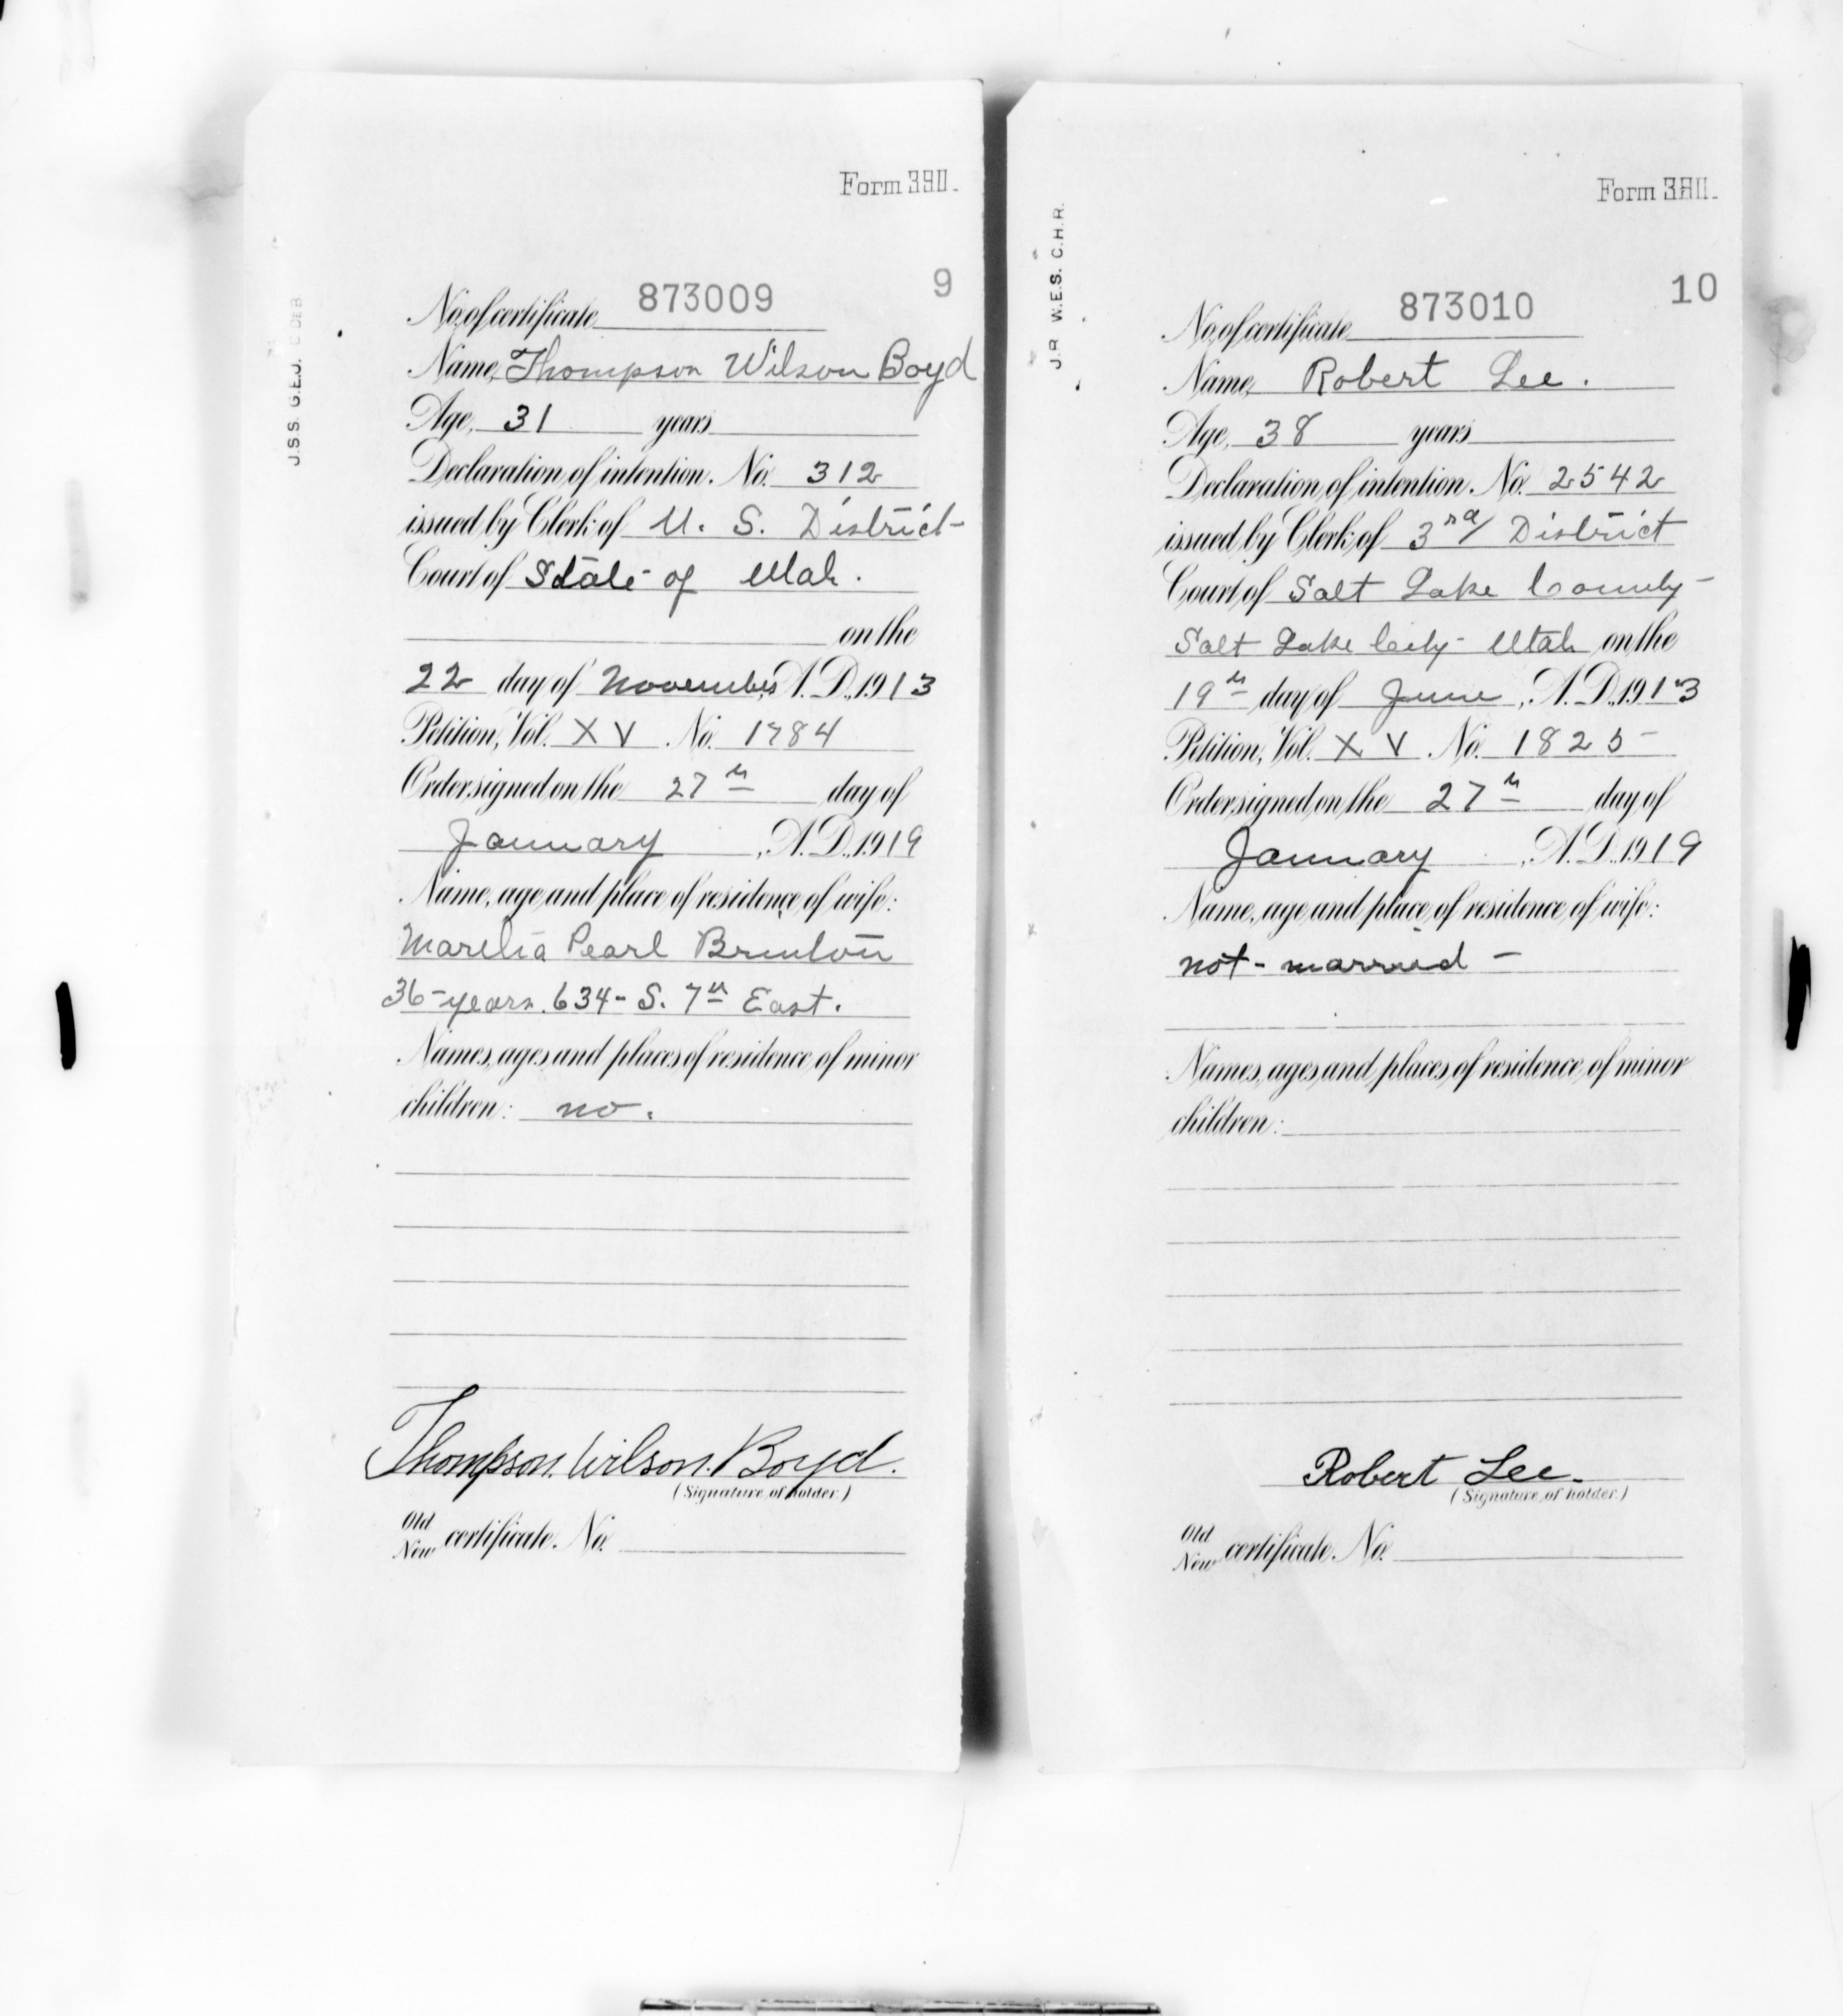 Form 330.
9
No. of certificate 873009
Name, Thompson Wilson Boyd
Age, 31 years
Declaration of intention. No. 312
issued by Clerk of U. S. District
Court of State of Utah.
on the
22 day of November, A. D., 1913
Petition, Vol. XV No. 1784
Order signed on the 27th day of
January, A. D., 1919
Name, age and place of residence of wife:
Pearl Brinton
36 years. 634 - S. 7th East.
Names, ages and places of residence of minor
children: no.
Thompson. Wilson. Boyd.
(Signature of holder.)
Old
New certificate. No.
J.S.S. G.E.J. C DEB
Form
10
No. of certificate 873010
Name, Robert Lee.
Age, 38 years
Declaration of intention. No. 2542
issued by Clerk of 3rd District
Court of Salt Lake County -
Salt Lake City - Utah on the
19th day of June, A. D., 1913
Petition, Vol. XV No. 1825 -
Order signed on the 27th day of
January, A. D., 1919
Name, age and place of residence of wife:
not - married -
Names, ages and places of residence of minor
children:
Robert Lee.
(Signature of holder.)
Old
New certificate. No.
J.R. W.E.S. C.H.R.